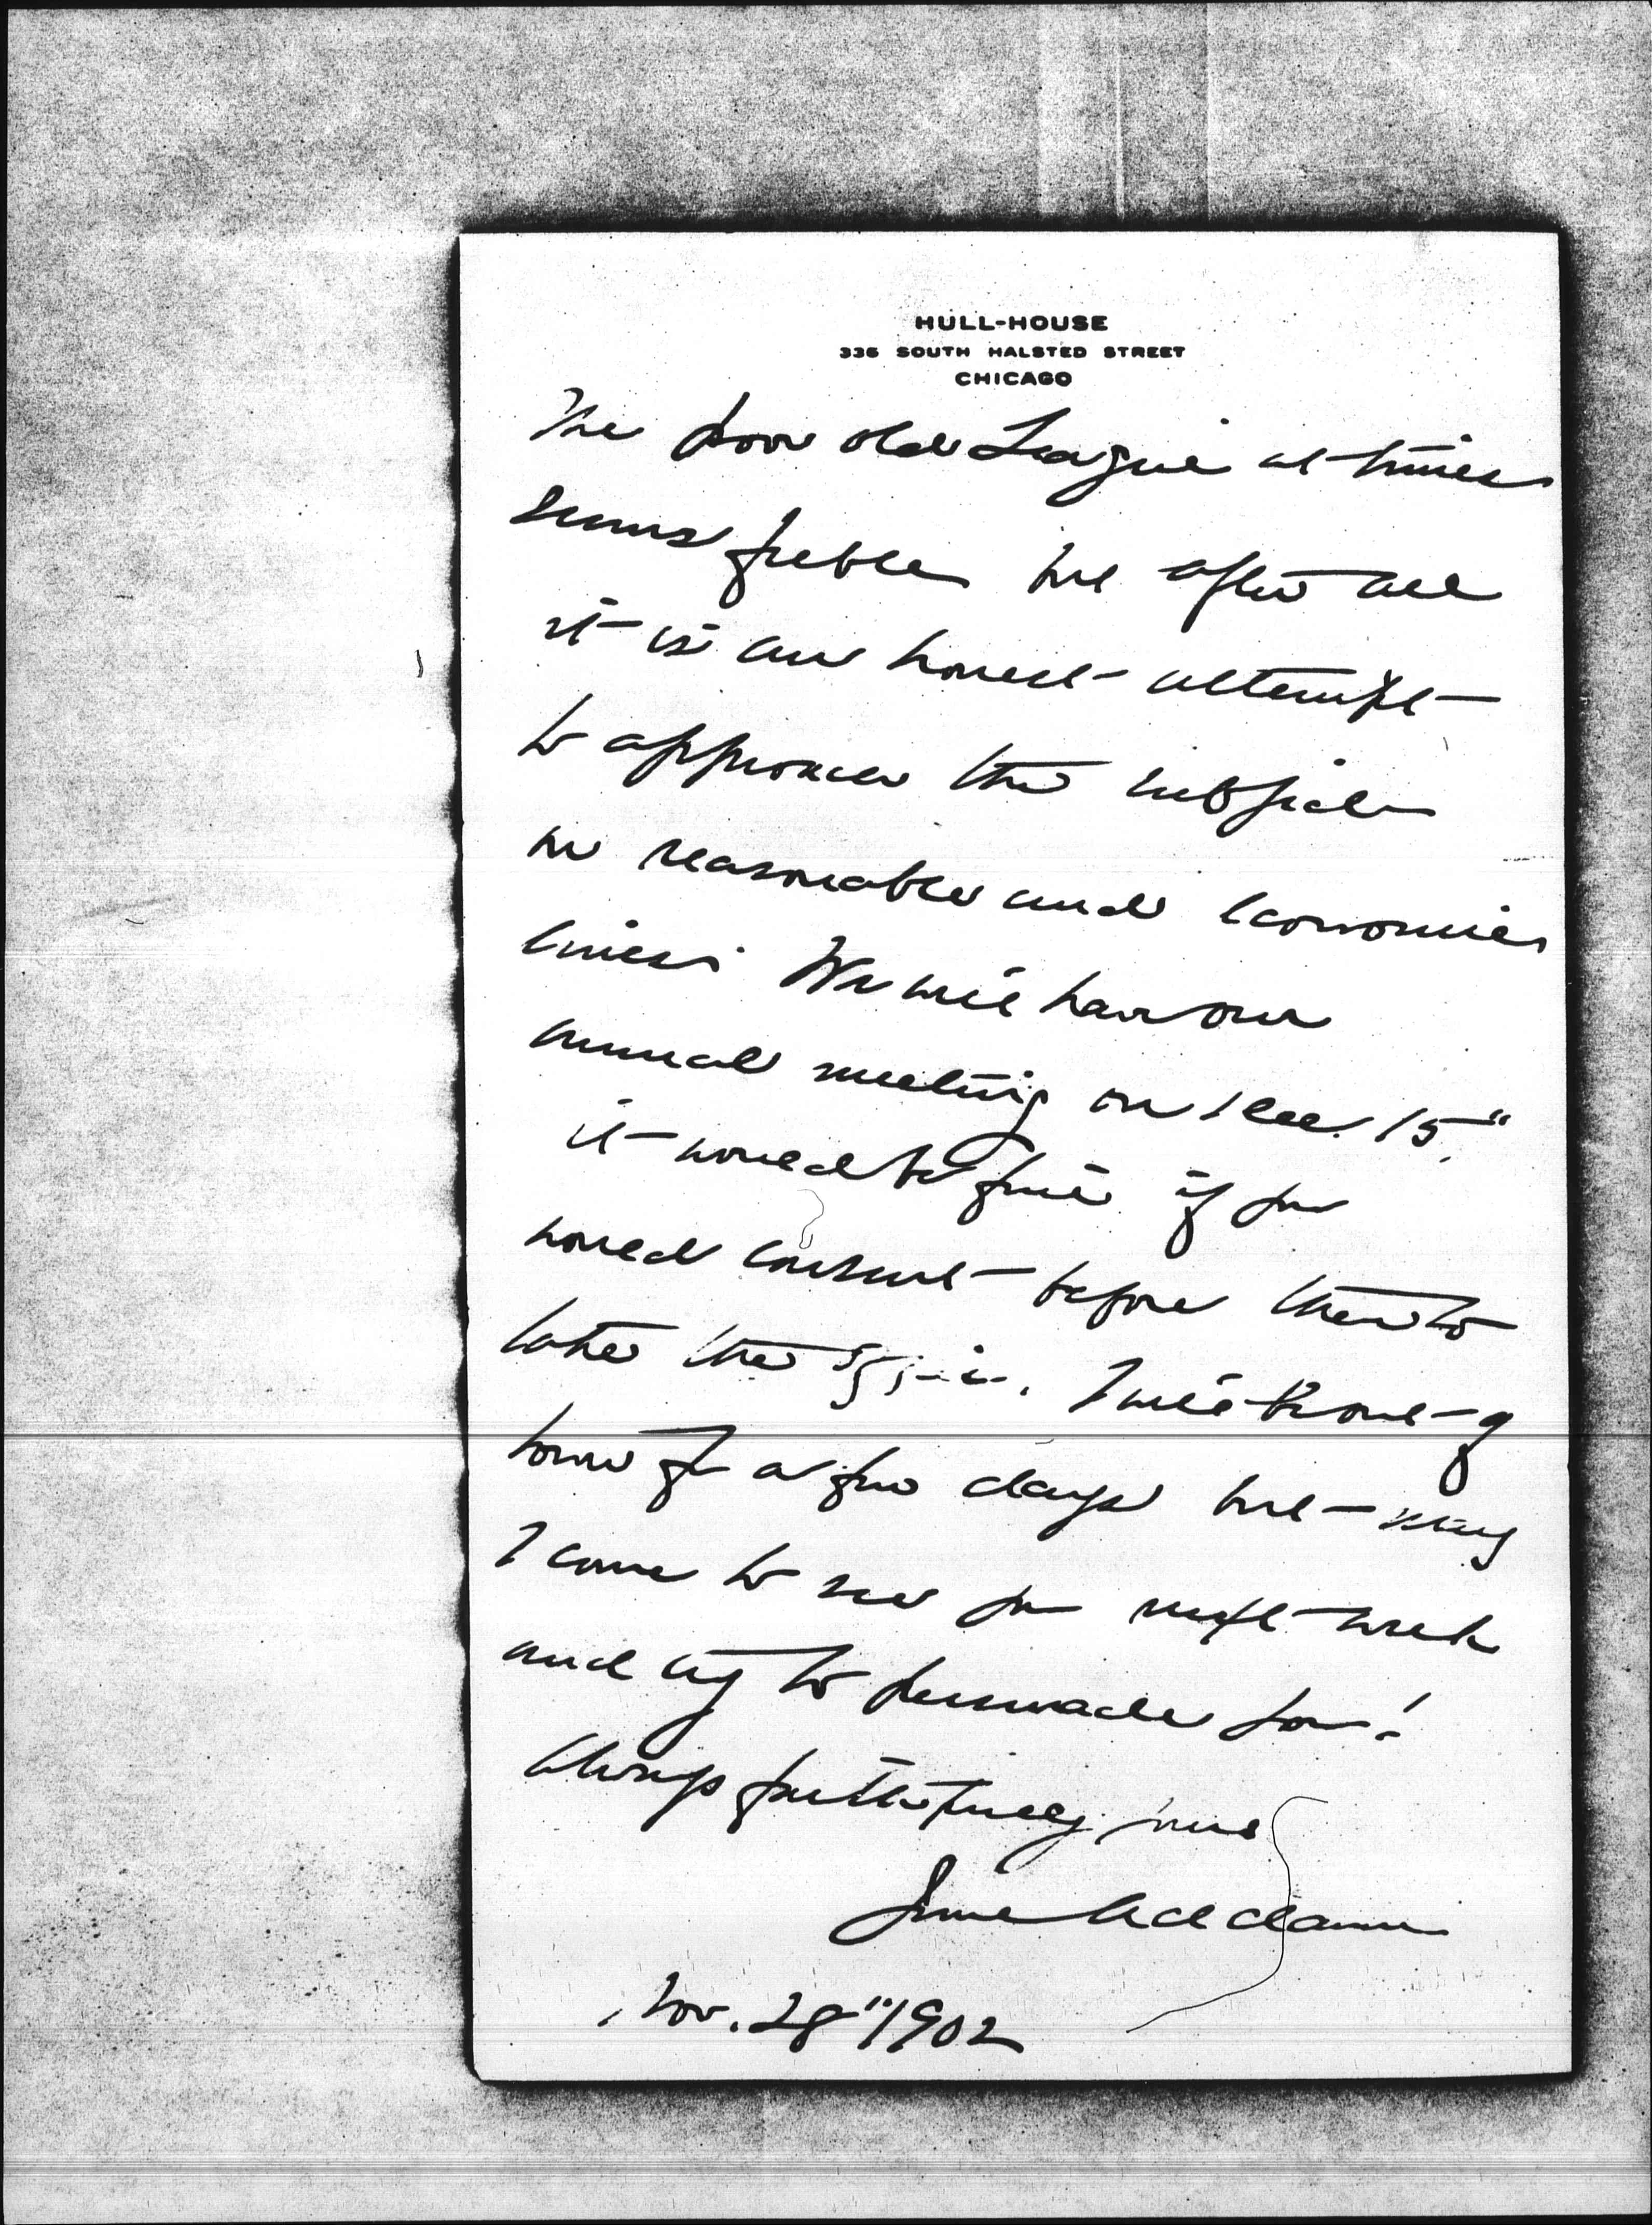 HULL-HOUSE
335 SOUTH HALSTED STREET
CHICAGO
The poor old League at times
seems feeble but after all
it is an honest attempt
to approach the subject
on reasonable and economic
lines. We will have our
annual meeting on Dec. 15"
it would be fine if you
would consent before then to
take the I will be out of
town for a few days but may
I come to see you next week
and try to persuade you!
Always faithfully yours
Jane Addams
Nov. 28" 1902